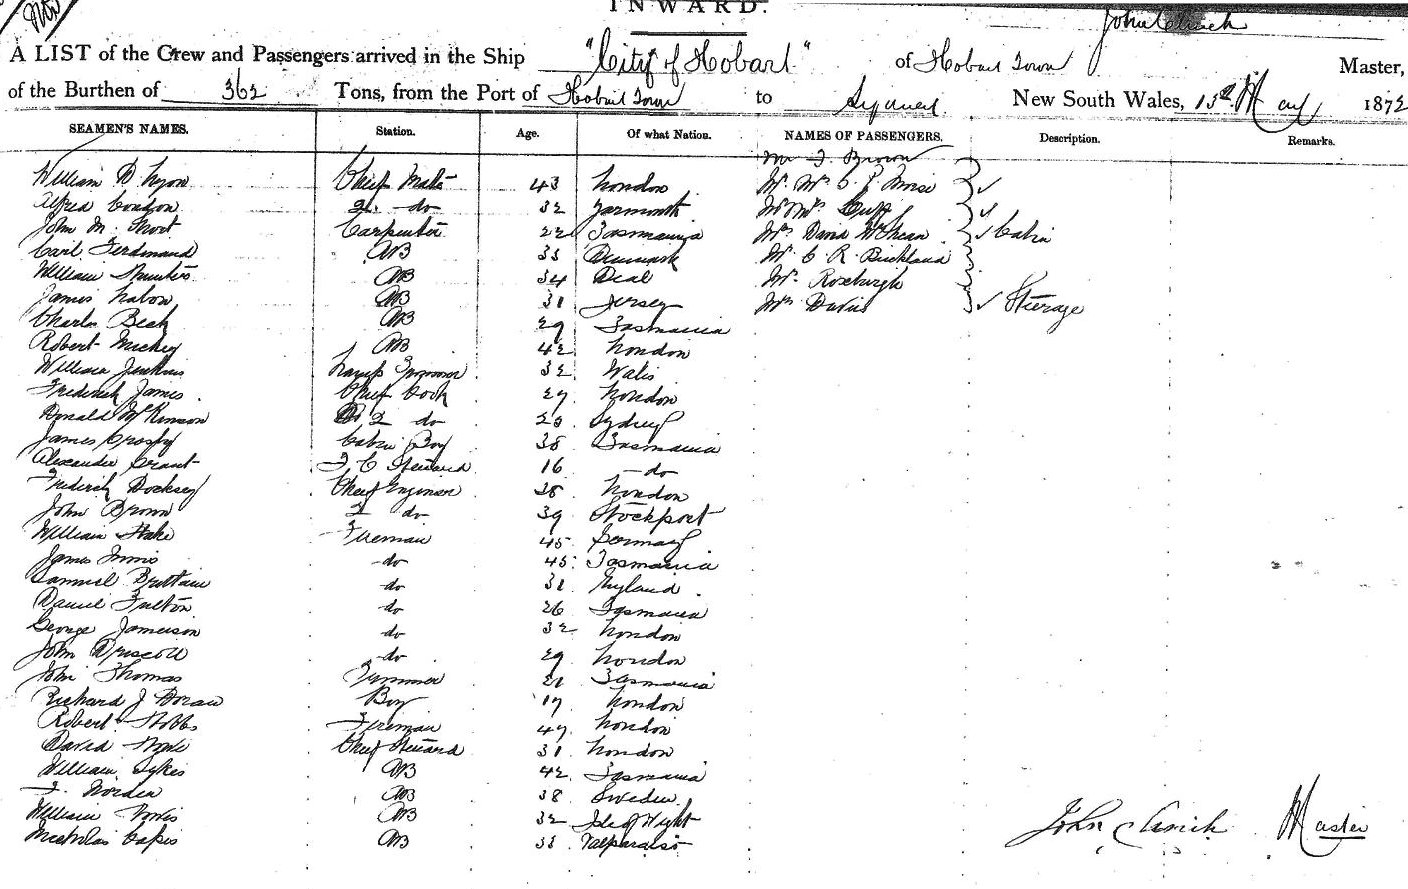 INWARD.
A LIST of the Crew and Passengers arrived in the Ship "City of Hobart" of Hobart Town John Clinch Master,
of the Burthen of 362 Tons, from the Port of Hobart Town to Sydney New South Wales, 13th May 1872
SEAMEN'S NAMES. Station. Age. Of what Nation. NAMES OF PASSENGERS. Description. Remarks.
Mr J. Brown
William D Lyon Chief Mate 43 London Mr. Mrs C. J.
Alfred Condon 2. do 32 Yarmouth Mr Mrs Cuff
John M. Short Carpenter 22 Tasmania Mr David McLean Cabin
Carl Ferdinand AB 33 Denmark Mr. C R. Buckland
William AB 34 Deal Mr. Roxburgh
James AB 31 Jersey Mr Davis Steerage
Charles Beck AB 29 Tasmania
Robert AB 42 London
William Jenkins Lamp Trimmer 32 Wales
Frederick James Chief Cook 27 London
Donald McKinnon 2 do Sydney
James Crosby Cabin Boy 38 Tasmania
Alexander Grant F C Steward 16 do
Frederick Chief Engineer 38 London
John Brown 2 do 39 Stockport
William Stake Fireman 45 Germany
James Innis do 45 Tasmania
Samuel Brittain do 31 England
Daniel Fulton do 26 Tasmania
George Jamieson do 32 London
John Driscoll do 29 London
John Thomas Trimmer 21 Tasmania
Richard J Boy 17 London
Robert Hobbs Fireman 47 London
David Chief Steward 31 London
William Sykes AB 42 Tasmania
AB 38 Sweden
William AB 32 Isle of Wight
Nicholas AB 33 Valparaiso
John Clinch Master